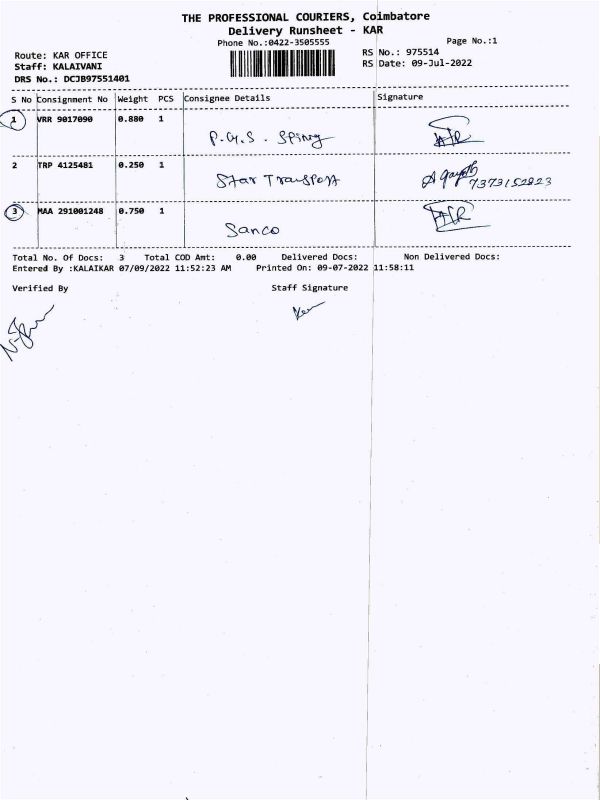 THE PROFESSIONAL COURIERS, Coimbatore
Delivery Runsheet - KAR
Phone No.:0422-3505555
Page No.:1
Route: KAR OFFICE
RS No.: 975514
Staff: KALAIVANI
RS Date: 09-Jul-2022
DRS No.: DCJB97551401
S No Consignment No Weight PCS Consignee Details Signature
1 VRR 9017090 0.880 1
P.G.S. Sping
2 TRP 4125481 0.250 1
Star Transport
7373152823
3 MAA 291001248 0.750 1
Sanco
Total No. Of Docs: 3 Total COD Amt: 0.00 Delivered Docs: Non Delivered Docs:
Entered By :KALAIKAR 07/09/2022 11:52:23 AM Printed On: 09-07-2022 11:58:11
Verified By Staff Signature